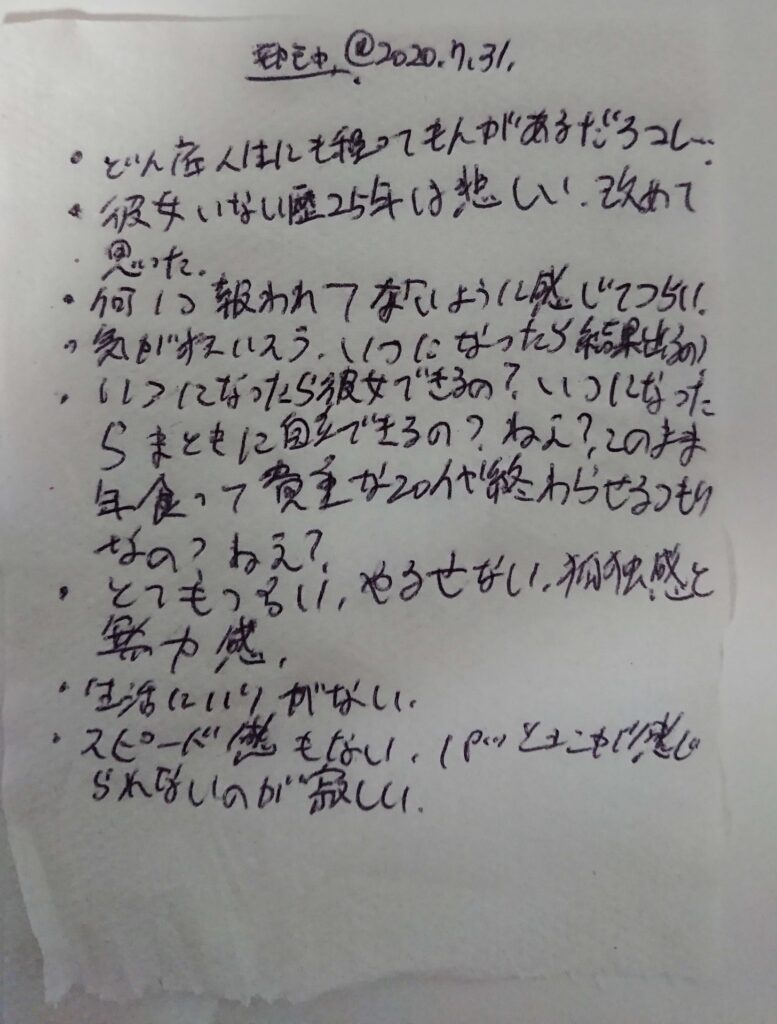 @2020.7.31.
・どん底人生にも程ってもんがあるだろコレ…
・彼女いない歴25年は悲しい.改めて
思った.
・何1つ報われてないように感じてつらい.
・気が狂いそう.いつになったら結果出るの?
・いつになったら彼女できるの?いつになった
らまともに自立できるの?ねえ?このまま
年食って貴重な20代終わらせるつもり
なの?ねえ?
・とてもつらい,やるせない.孤独感と
無力感,
・生活にハリがない.
・スピード感もない.パッと感じ
られないのが寂しい.